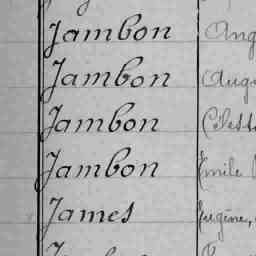 Jambon Ang
Jambon Augu
Jambon Célest
Jambon Emile
James Eugène,